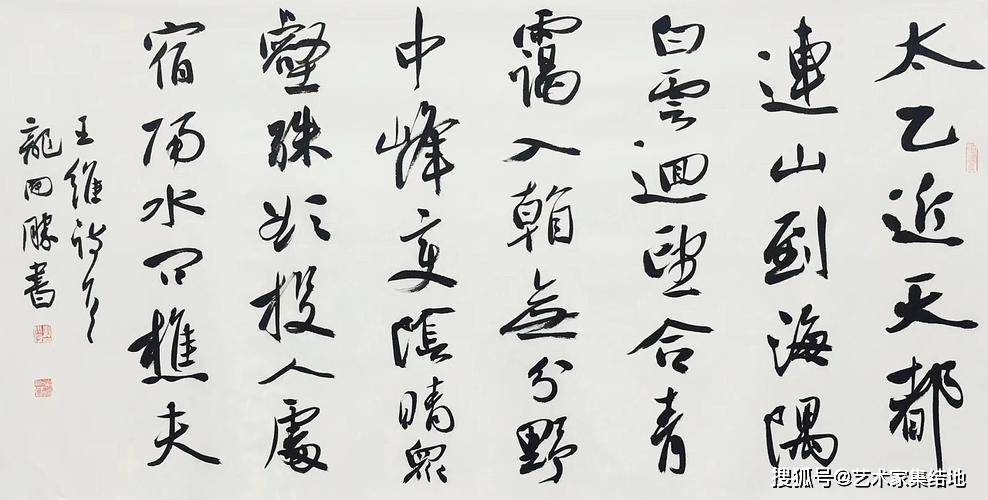 太乙近天都
連山到海隅
白雲迴望合青
靄入看無分野
中峰变陰晴眾
壑殊欲投人處
宿隔水问樵夫
王維詩
龍 書
搜狐号@艺术家集结地